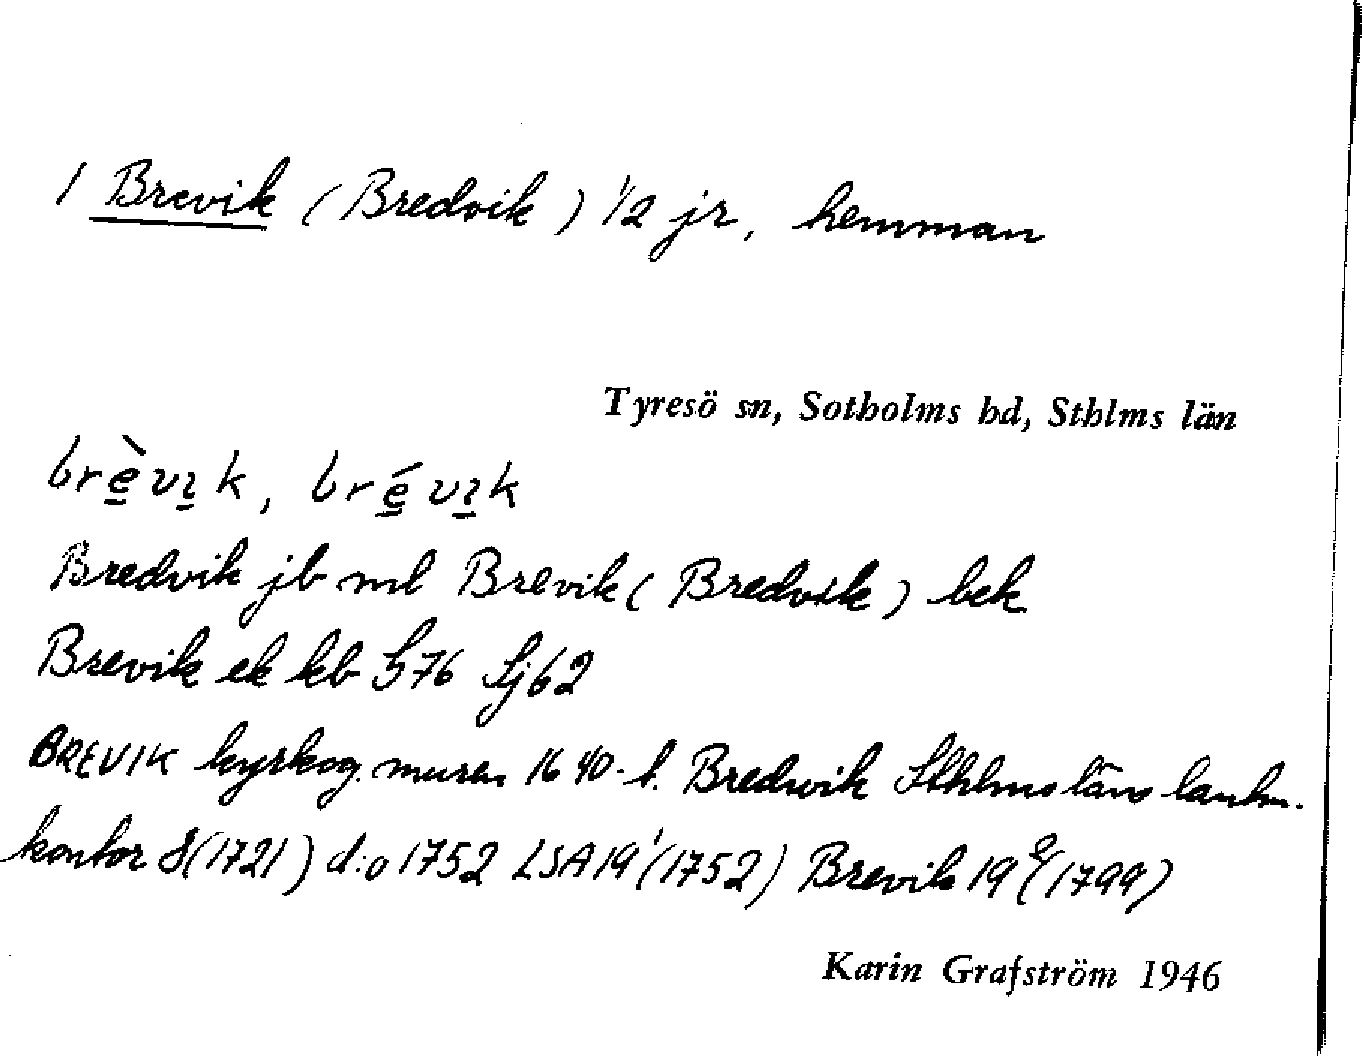 1 Brevik (Bredvik) 1/2 jr, hemman
Tyresö sn, Sotholms hd, Sthlms län
brèvɩk, brévɩk
Bredvik jb ml Brevik (Bredvik) bek
Brevik ek kb h76 Sj62
BREVIK kyrkog. muren 1640-t. Bredwik Sthlms läns lantm.
kontor 8(1721) d:o 1752 LSA 19¹(1752) Brevik 19⁹(1799)
Karin Grafström 1946